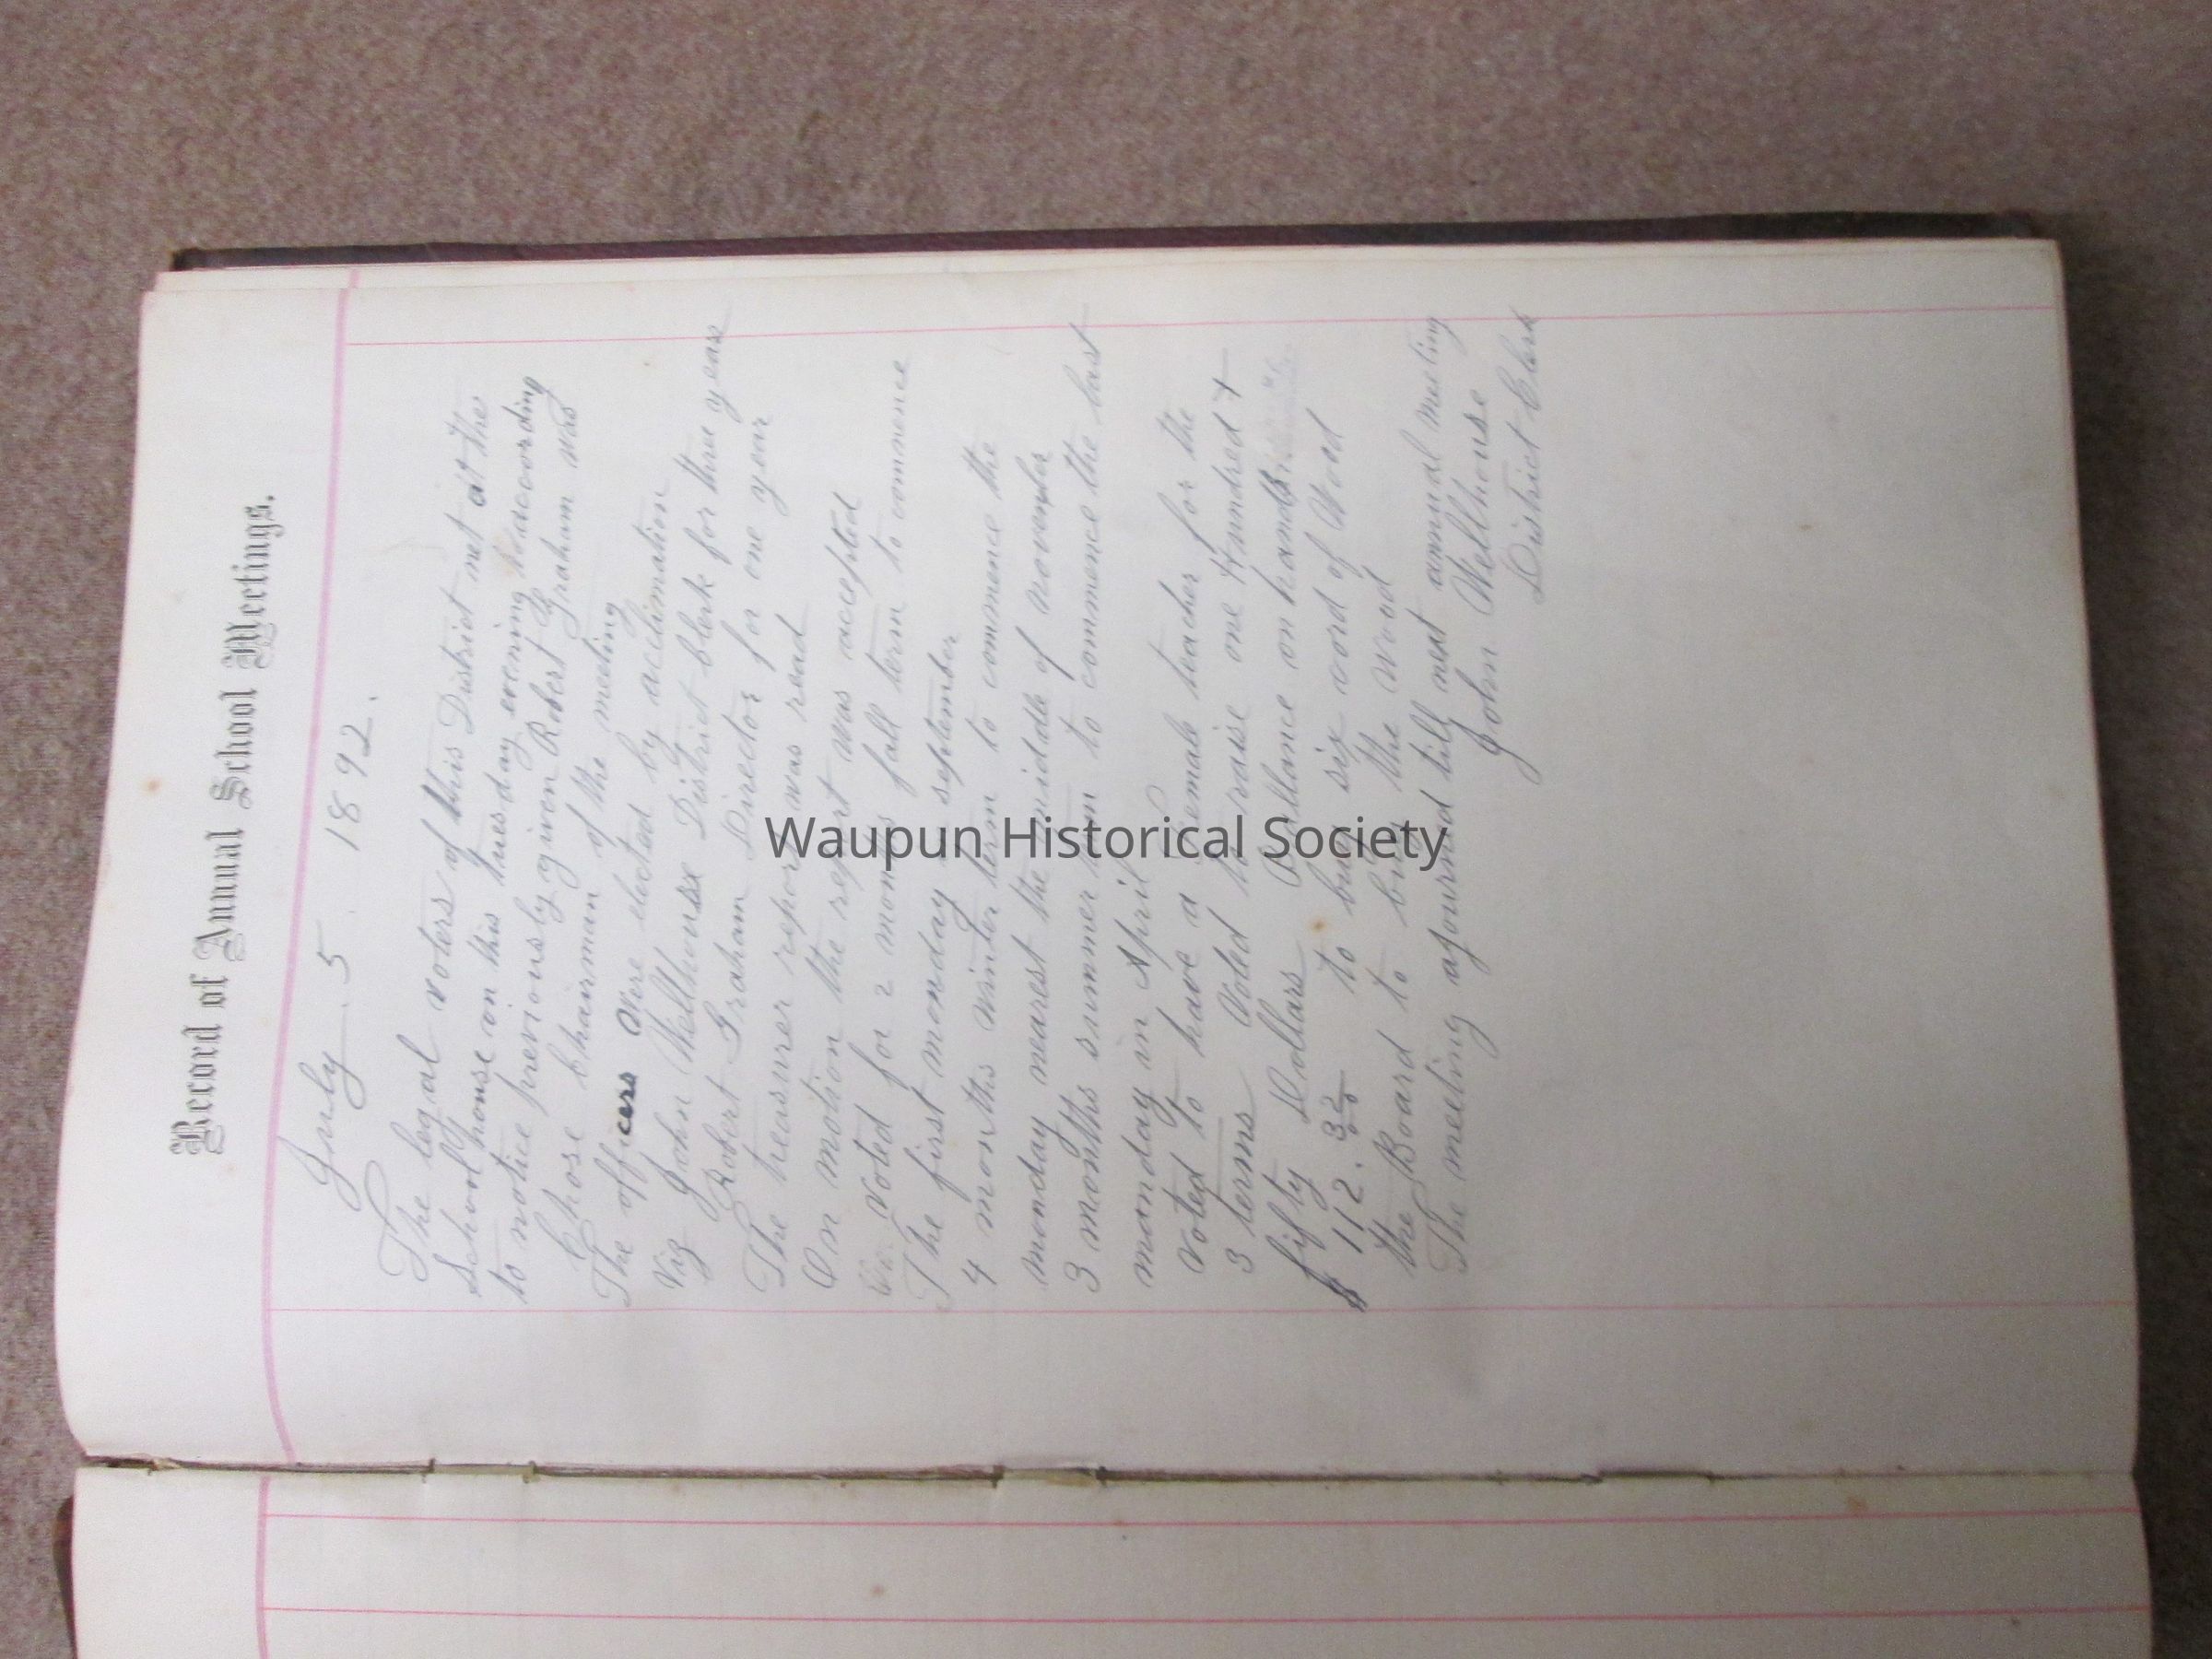 Record of Annual School Meetings.
July 5 1892.
The legal voters of this District met at the
School house on this tuesday evening according
to notice previously given Robert Graham was
Chose Chairman of the meeting
The officers Were elected by acclimation
Viz John Wellhouse District Clerk for three years
Robert Graham Director for one year
The treasurer report was read
On motion the report was accepted
Voted for 2 months fall term to commence
The first monday in september
4 months winter term to commence the
monday nearest the middle of november
3 months summer term to commence the last
monday in April
Voted to have a Female teacher for the
3 terms Voted to raise one Hundred +
fifty Dollars Ballance on hand
$112.32 to buy six cord of Wood
the Board to buy the wood
The meeting ajourned till next annual meeting
John Wellhouse
District Clerk
Waupun Historical Society